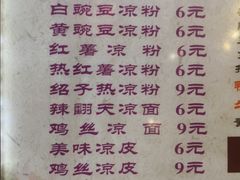 白豌豆凉粉 6元
黄豌豆凉粉 6元
红薯凉粉 6元
热红薯凉粉 9元
绍子热凉粉 9元
辣翻天凉面 6元
鸡丝凉面 9元
美味凉皮 6元
鸡丝凉皮 9元